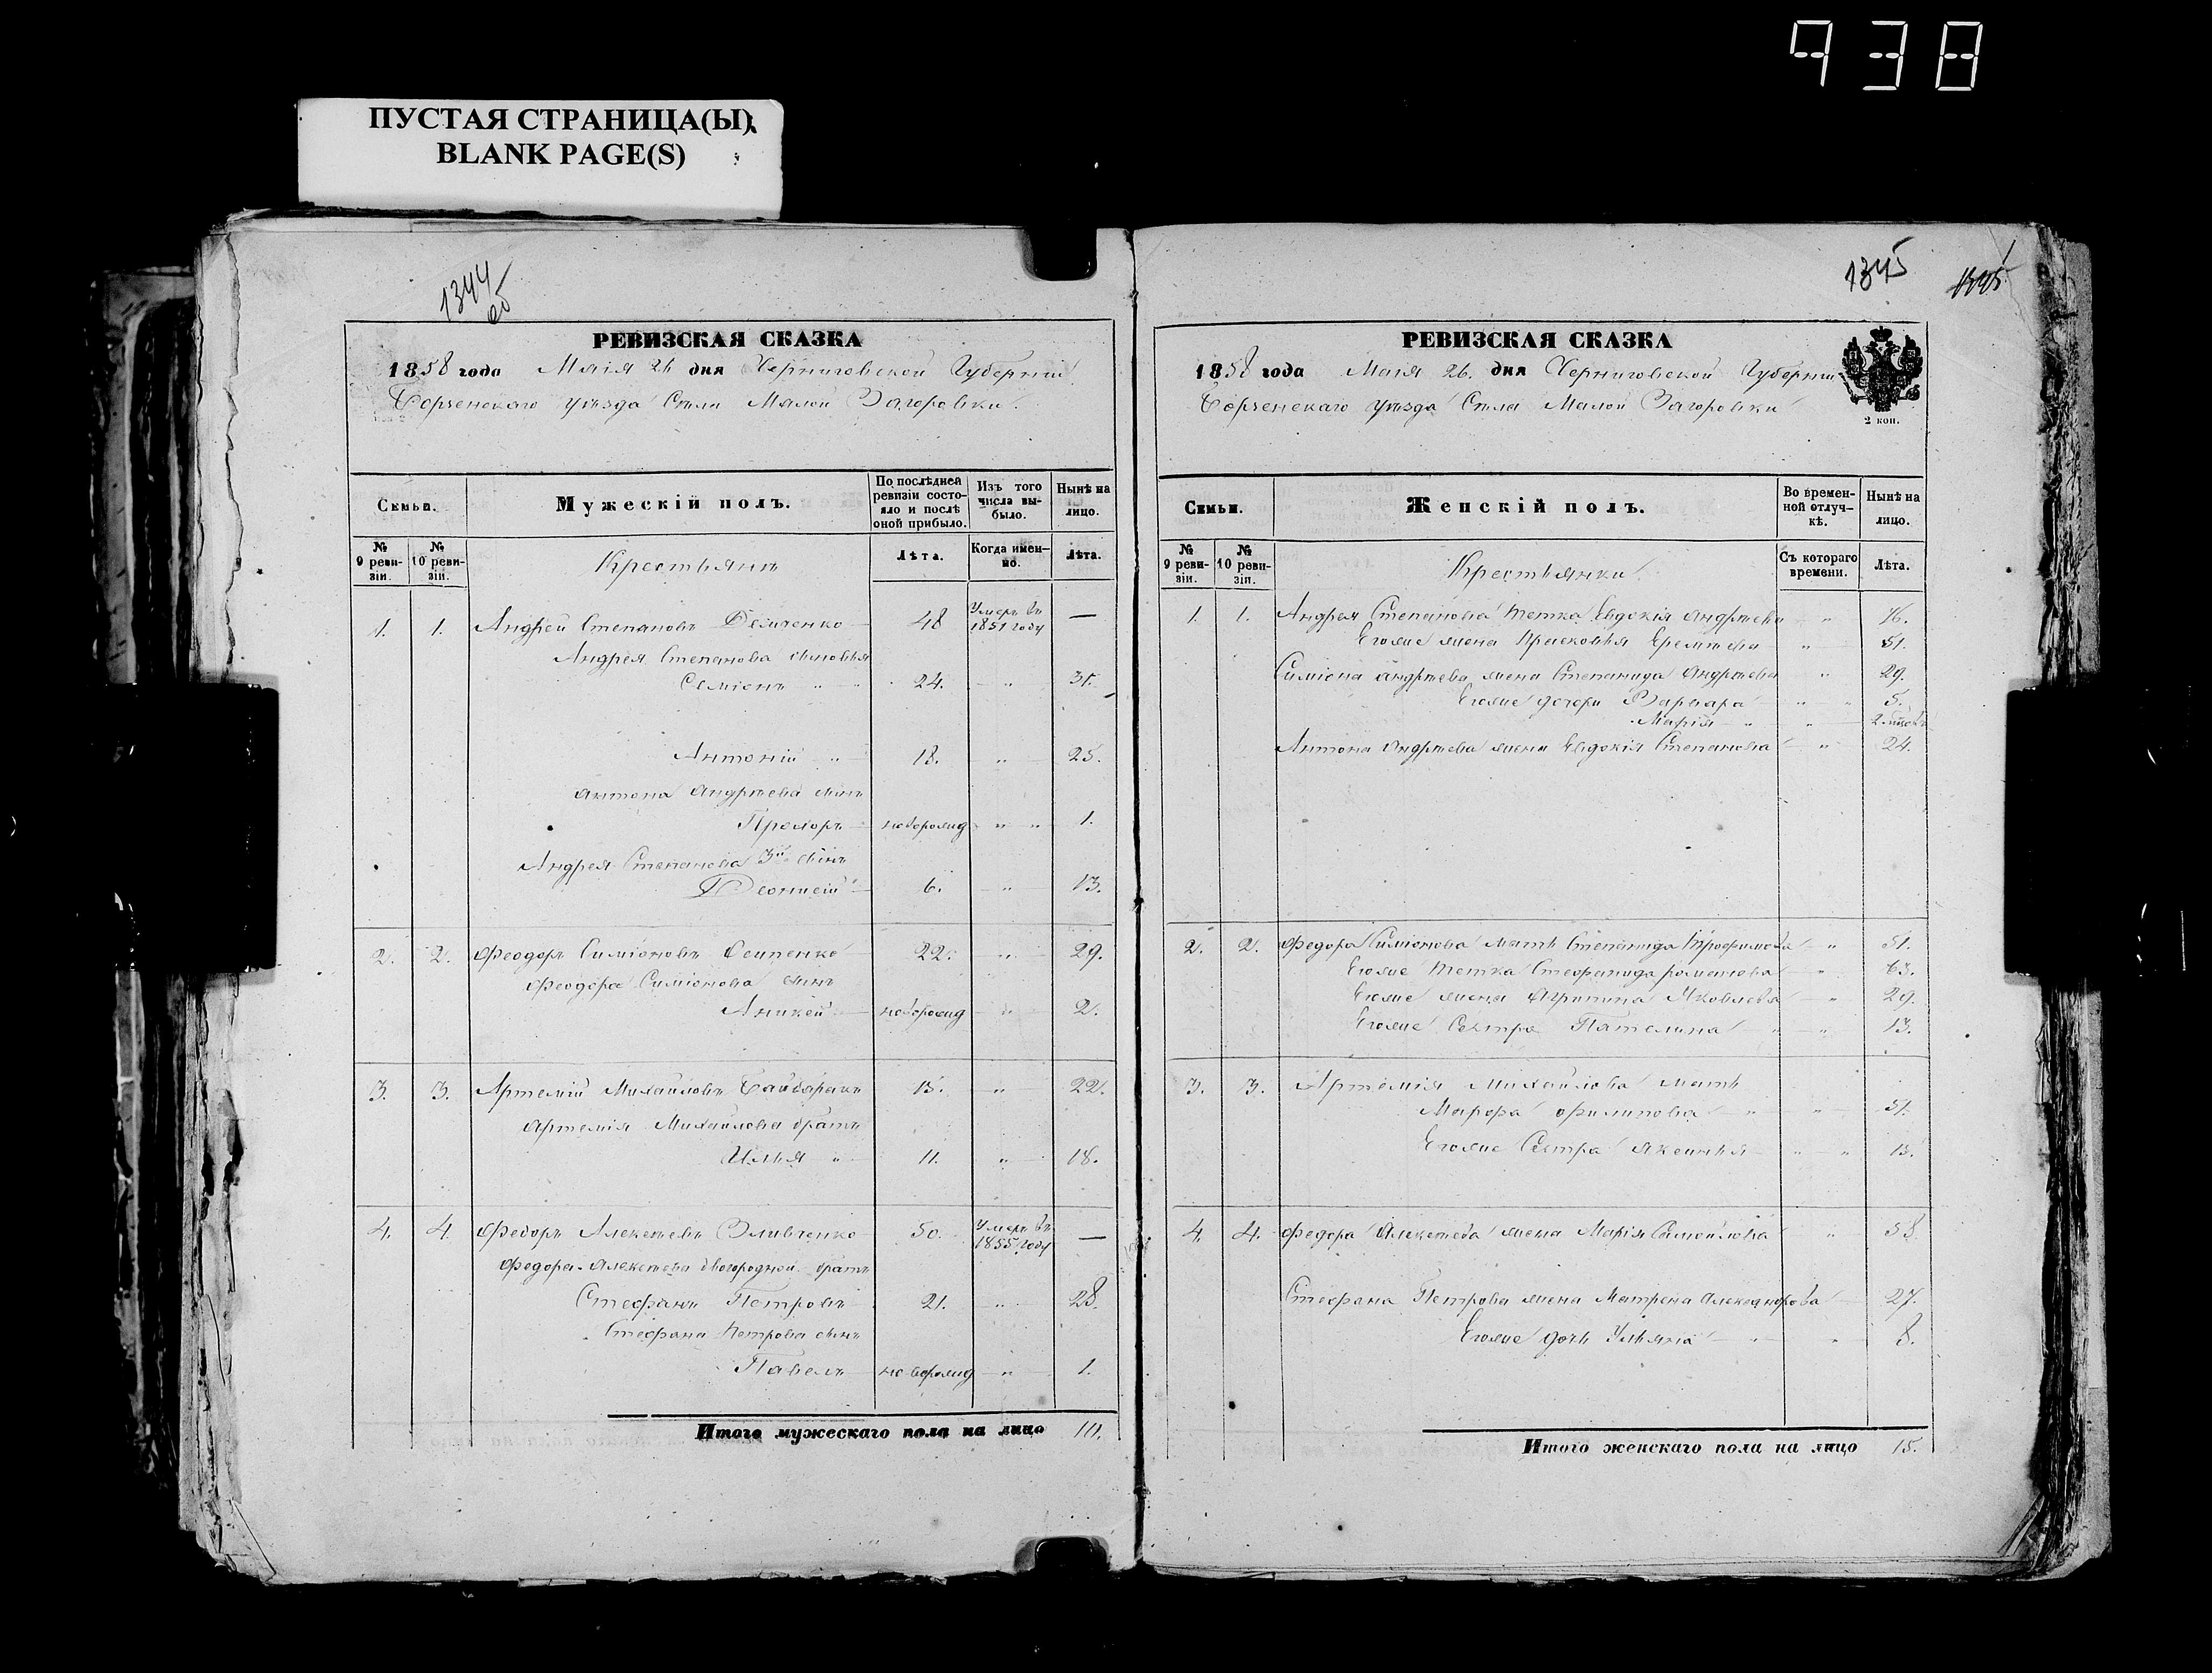 938
ПУСТАЯ СТРАНИЦА(Ы),
BLANK PAGE(S)
1344
об
РЕВИЗСКАЯ СКАЗКА
1858 года Маія 26 дня Черниговской Губерніи
Борзенскаго уѣзда Села Малой Загоровки.
Семьи.
Мужескій полъ.
По послѣдней ревизіи состояло и послѣ оной прибыло.
Изъ того числа выбыло.
Нынѣ на лицо.
№ 9 ревизіи.
№ 10 ревизіи.
Крестьянъ
Лѣта.
Когда именно.
Лѣта.
1. 1. Андрей Степановъ Демченко 48 Умеръ въ 1851 году —
Андрея Степанова сыновья
Семіонъ " " 24. " 31.
Антоній " 18. " 25.
Антона Андрѣева сынъ
Прохоръ новорожд " " 1.
Андрея Степанова 3й сынъ
Деонисій 6. " 13.
2. 2. Феодоръ Симіоновъ 22. " 29.
Феодора Симіонова сынъ
Аникей новорожд " 2.
3. 3. Артемій Михайловъ Байбаракъ 15. " 22.
Артемія Михайлова братъ
Илья " 11. " 18.
4. 4. Федоръ Алексѣевъ 50. Умеръ въ 1855 году —
Федора Алексѣева двоюродной братъ
Стефанъ Петровъ 21. " 28.
Стефана Петрова сынъ
Павелъ новорожд " 1.
Итого мужескаго пола на лицо 10.
1345
1345
РЕВИЗСКАЯ СКАЗКА
1858 года Маія 26. дня Черниговской Губерніи
Борзенскаго уѣзда Села Малой Загоровки
2 коп.
Семьи.
Женскій полъ.
Во временной отлучкѣ.
Нынѣ на лицо.
№ 9 ревизіи.
№ 10 ревизіи.
Крестьянки
Съ котораго времени.
Лѣта.
1. 1. Андрея Степанова тетка Евдокія Андрѣева " 76.
Егоже жена Прасковья Еремѣева " 51.
Симіона Андрѣева жена Степанида Андрѣева " 29.
Егоже дочери Варвара " " 5.
Марія " " 2
Антона Андрѣева жена Евдокія Степанова " 24.
2. 2. Федора Симіонова мать Степанида Трофимова " 51.
Егоже тетка Стефанида Романова " 63.
Егоже жена Агрипина Яковлева " 29.
Егоже Сестра Пателина " " 13.
3. 3. Артемія Михайлова мать
Марфа Филипова " " 51.
Егоже Сестра Аксинья " " 13.
4. 4. Федора Алексѣева жена Марія Самойлова " 58
Стефана Петрова жена Матрена Александрова 27.
Егоже дочь Ульяна " " 8.
Итого женскаго пола на лицо 15.